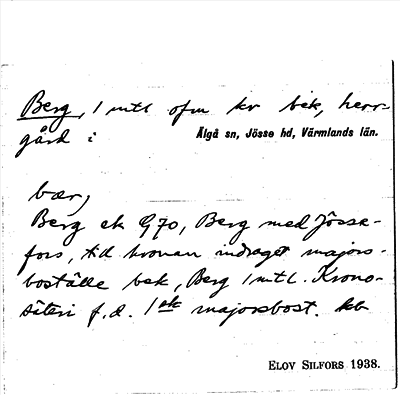 Berg, 1 mtl ofm kr bek, herr-
gård i Älgå sn, Jösse hd, Värmlands län.
bær,
Berg ek G70, Berg med Jösse-
fors, till kronan indraget majors-
boställe bek, Berg 1 mtl. Krono-
säteri f.d. 1 majorsbost. kb
ELOV SILFORS 1938.